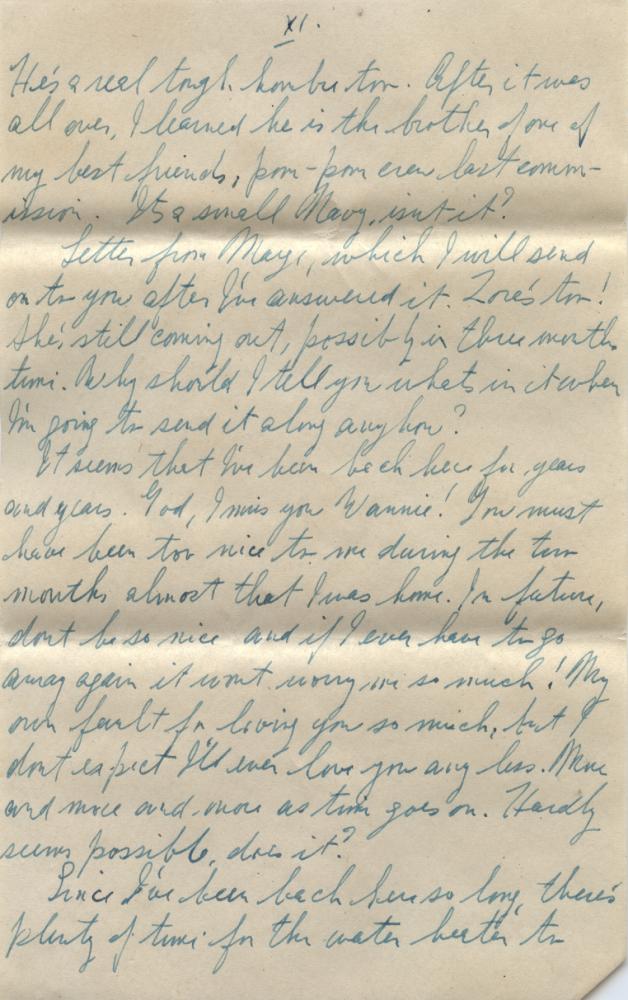 XI.
He's a real tough hombre too. After it was
all over, I learned he is the brother of one of
my best friends, pom-pom crew last comm-
ission. It's a small Navy, isn't it?
Letter from Marge, which I will send
on to you after I've answered it. Love's too!
She's still coming out, possibly in three months
time. Why should I tell you whats in it when
I'm going to send it along anyhow?
It seems that I've been back here for years
and years. God, I miss you Wannie! You must
have been too nice to me during the two
months almost that I was home. In future,
dont be so nice and if I ever have to go
away again it wont worry me so much! My
own fault for loving you so much, but I
dont expect I'll ever love you any less. More
and more and more as time goes on. Hardly
seems possible, does it?
Since I've been back here so long, there's
plenty of time for the water heater to